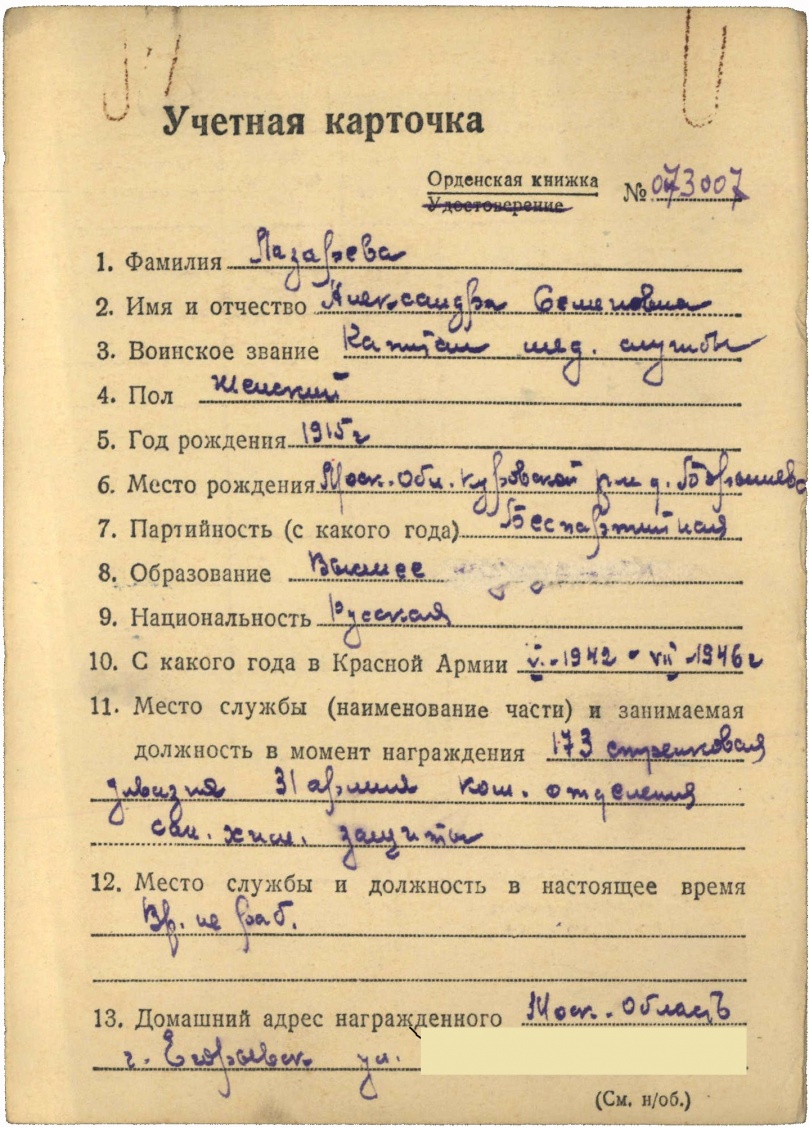 Учетная карточка
Орденская книжка
Удостоверение
№ 073007
1. Фамилия Лазарева
2. Имя и отчество Александра Семеновна
3. Воинское звание Капитан мед. службы
4. Пол женский
5. Год рождения 1915 г
6. Место рождения Моск. Обл. Куровской р-н д.
7. Партийность (с какого года) Беспартийная
8. Образование Высшее
9. Национальность Русская
10. С какого года в Красной Армии VI. 1942 - VII 1946 г
11. Место службы (наименование части) и занимаемая
должность в момент награждения 173 стрелковая
дивизия 31 армия ком. отделения
сан. хим. защиты
12. Место службы и должность в настоящее время
Вр. не раб.
13. Домашний адрес награжденного Моск. Область
г. Егорьевск ул.
(См. н/об.)